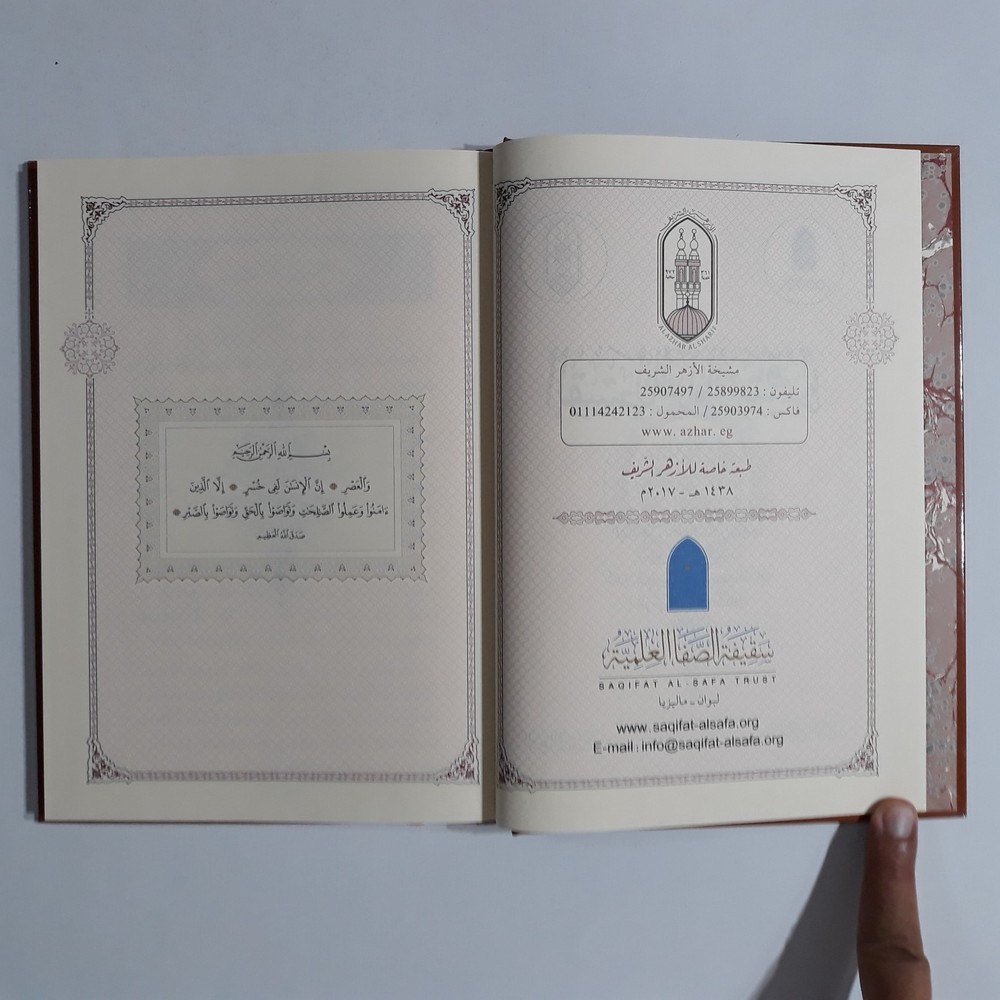 بِسْمِ اللهِ الرَّحْمٰنِ الرَّحِيْمِ
وَالْعَصْرِ * إِنَّ الْإِنسَٰنَ لَفِى خُسْرٍ * إِلَّا الَّذِينَ
ءَامَنُوا۟ وَعَمِلُوا۟ الصَّٰلِحَٰتِ وَتَوَاصَوْا۟ بِالْحَقِّ وَتَوَاصَوْا۟ بِالصَّبْرِ *
صَدَقَ اللهُ الْعَظِيم
الأزهر الشريف
AL AZHAR AL SHARIF
مشيخة الأزهر الشريف
تليفون : 25899823 / 25907497
فاكس : 25903974/ المحمول : 01114242123
www. azhar. eg
طبعة خاصة للأزهر الشَّريف
١٤٣٨ هـ - ٢٠١٧م
سَقِيْفَةُ الصَّفَا العِلْمِيَّة
SAQIFAT AL-SAFA TRUST
لبوان - ماليزيا
www.saqifat-alsafa.org
E-mail : info@saqifat-alsafa.org